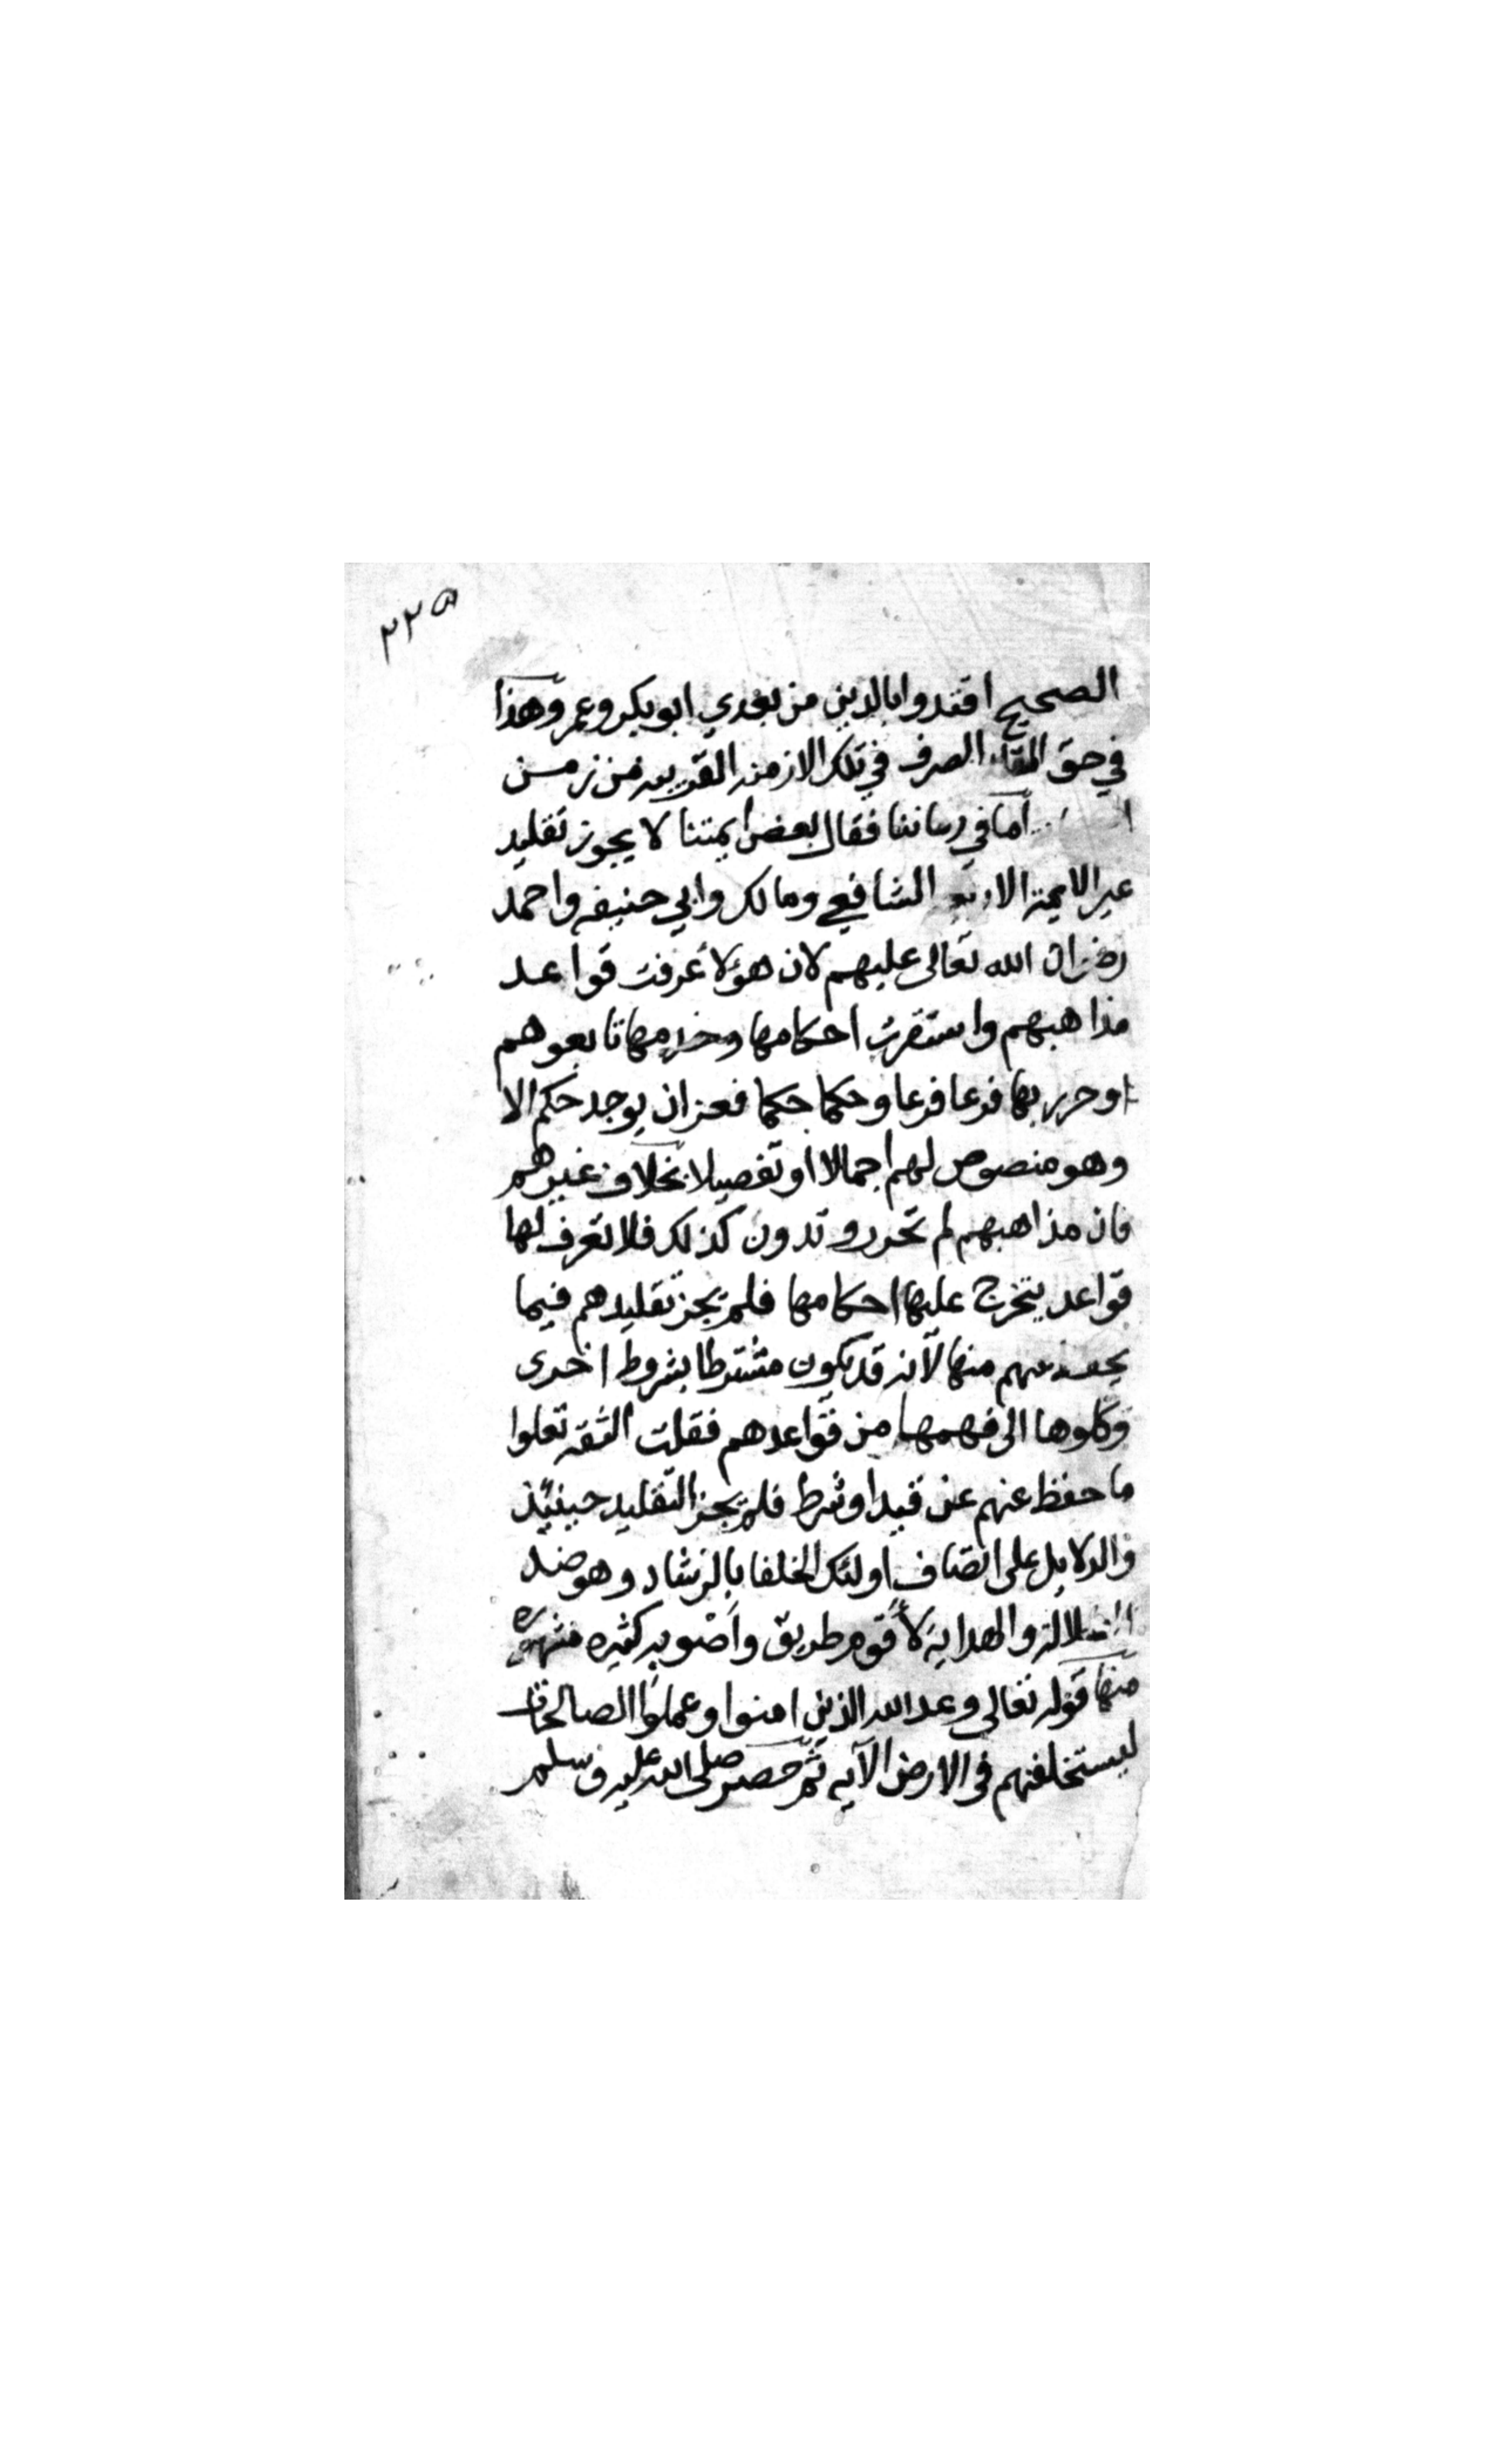 ٢٢٥
الصحيح اقتدوا بالذين من بعدي ابو بكر وعمر وهذا
في حق المقلد الصرف في تلك الازمنه القريبه من زمن
اما في زماننا فقال بعض ايمتنا لا يجوز تقليد
غير الايمة الاربعه الشافعي ومالك وابي حنيفه واحمد
رضوان الله تعالى عليهم لان هولا عرفت قواعد
مذاهبهم واستقرت احكامها وخدمها تابعوهم
وحرروها فرعا فرعا وحكما حكما فعز ان يوجد حكم الا
وهو منصوص لهم اجمالا او تفصيلا بخلاف غيرهم
فان مذاهبهم لم تحرر وتدون كذلك فلا تعرف لها
قواعد يتخرج عليها احكامها فلم يجز تقليدهم فيما
يحفظ عنهم منها لانه قد يكون مشترطا بشروط اخرى
وكلوها الى فهمها من قواعدهم فقلت الثقه تعلوا
ما حفظ عنهم عن قيد او شرط فلم يجز التقليد حينئذ
والدلايل على اتصاف اولئك الخلفا بالرشاد وهو ضد
الضلاله والهداية لأقوم طريق واصوبه كثيره مشهره
منها قوله تعالى وعد الله الذين امنوا وعملوا الصالحات
ليستخلفنهم في الارض الآيه ثم حصر صلى الله عليه وسلم